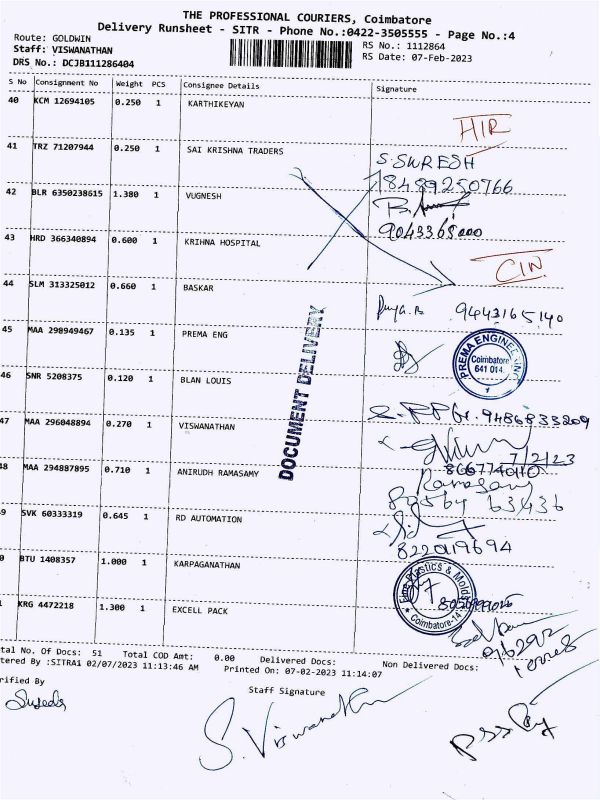 THE PROFESSIONAL COURIERS, Coimbatore
Delivery Runsheet - SITR - Phone No.:0422-3505555 - Page No.:4
Route: GOLDWIN
RS No.: 1112864
Staff: VISWANATHAN
RS Date: 07-Feb-2023
DRS No.: DCJB111286404
S No Consignment No Weight PCS Consignee Details Signature
40 KCM 12694105 0.250 1 KARTHIKEYAN
HIR
41 TRZ 71207944 0.250 1 SAI KRISHNA TRADERS
S. SURESH
42 BLR 6350238615 1.380 1 VUGNESH
43 HRD 366340894 0.600 1 KRIHNA HOSPITAL
CIN
44 SLM 313325012 0.660 1 BASKAR
9443165140
45 MAA 298949467 0.135 1 PREMA ENG
PREMA ENGINEE
Coimbatore
641 014
46 SNR 5208375 0.120 1 BLAN LOUIS
DOCUMENT DELIVERY
9486833209
47 MAA 296048894 0.270 1 VISWANATHAN
7/2/23
48 MAA 294887895 0.710 1 ANIRUDH RAMASAMY
Ramasamy
63436
9 SVK 60333319 0.645 1 RD AUTOMATION
0 BTU 1408357 1.000 1 KARPAGANATHAN
Plastics & Molds
Coimbatore-14
1 KRG 4472218 1.300 1 EXCELL PACK
tal No. Of Docs: 51 Total COD Amt: 0.00 Delivered Docs: Non Delivered Docs:
tered By :SITRA1 02/07/2023 11:13:46 AM Printed On: 07-02-2023 11:14:07
rified By
Staff Signature
S. Viswanathan